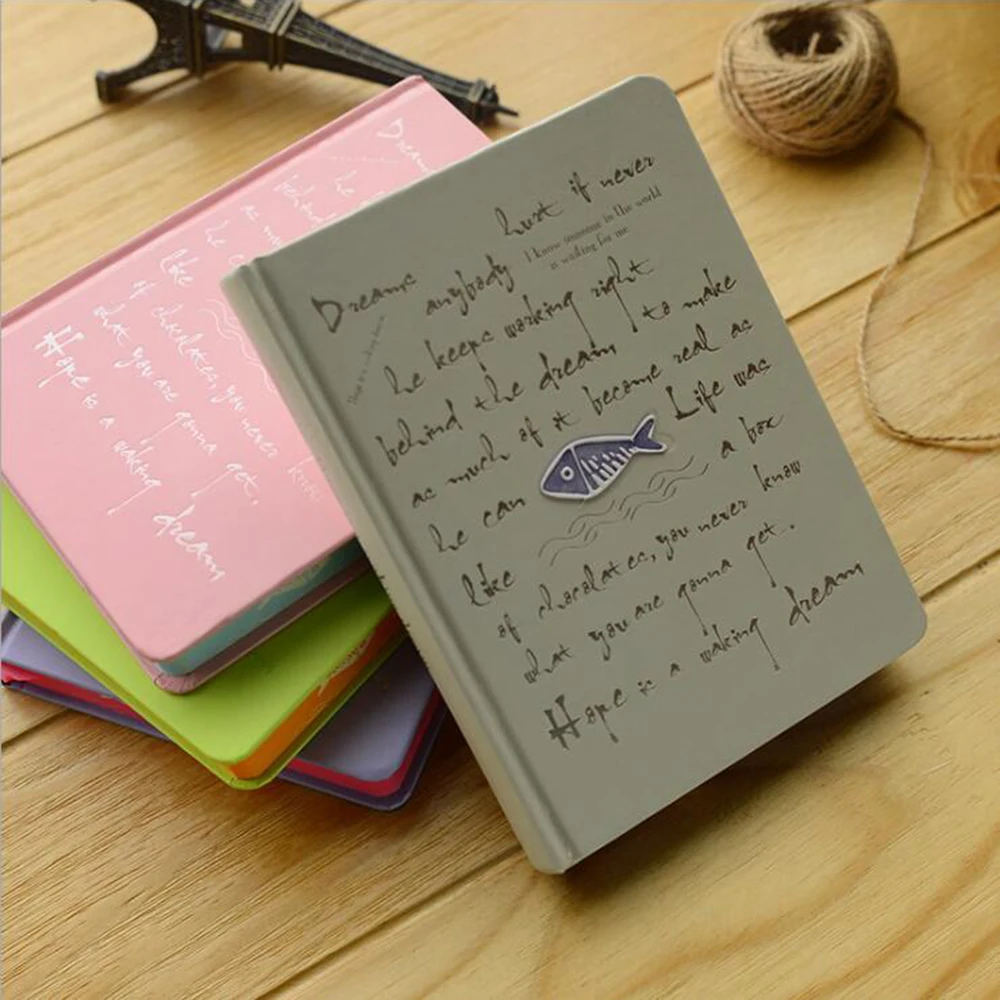 hurt if never
I know someone in the world
is waiting for me
Dreams anybody
he keeps working right
behind the dream to make
as much of it become real as
he can Life was
like a box
of chocolates, you never know
what you are gonna get.
Hope is a waking dream
Dream
he
behind
as mu
he c
like
of chocolates, you never know
what you are gonna get.
Hope is a waking dream